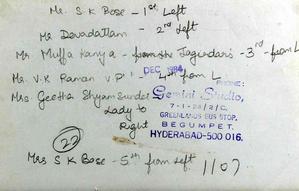 Mr. S K Bose - 1st Left
Mr Devadattam - 2nd Left
Mr Muffa Kanya - from the Jagirdars - 3rd - from L
Mr. V.K Raman V.P' - 4th from L
DEC 1984
PHONE:
Mrs Geetha Shyam Sunder
Lady to
Right
Gemini Studio,
7-1-28/2/C,
GREENLANDS BUS STOP,
BEGUMPET,
HYDERABAD-500 016.
22
Mrs S K Bose - 5th from left
1107